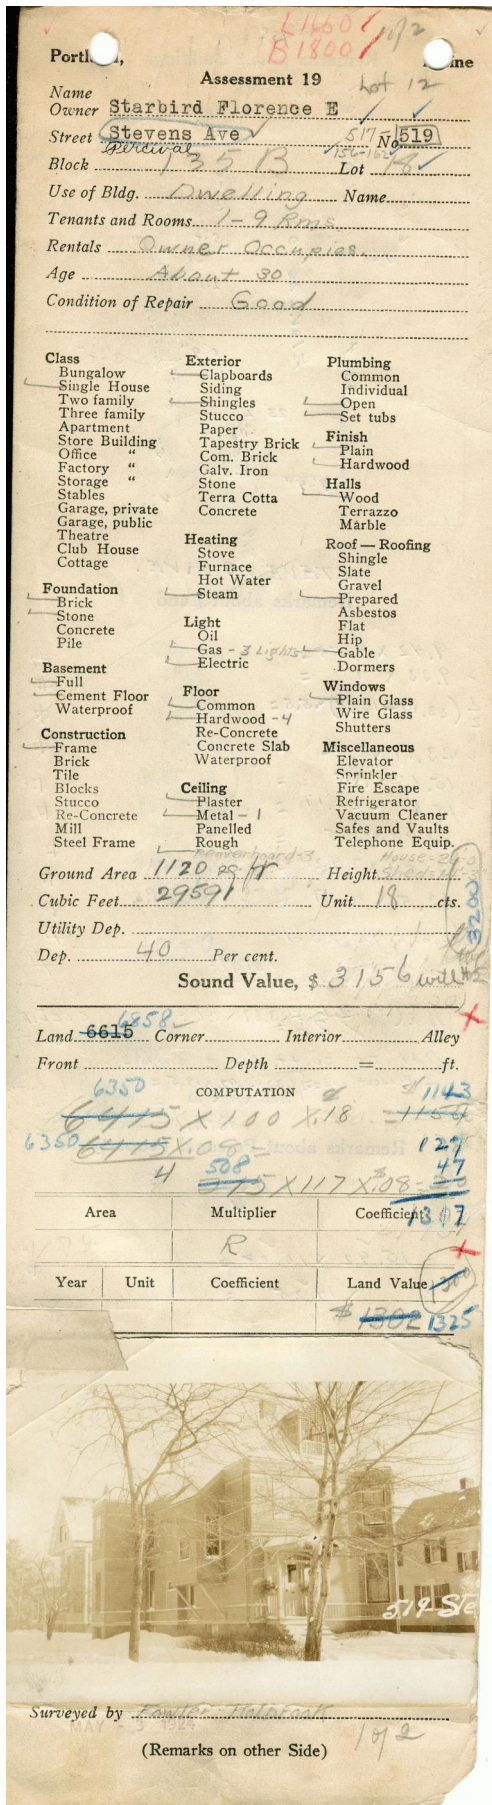 L1660
B1800
1 of 2
Portl , ine
Assessment 19
Lot 12
Name
Owner Starbird Florence E
Street Stevens Ave 517- No. 519
Percival 156-162
Block 135 B Lot 18
Use of Bldg. Dwelling Name
Tenants and Rooms 1-9 Rms.
Rentals Owner Occupies.
Age About 30
Condition of Repair Good
Class
Bungalow
Single House
Two family
Three family
Apartment
Store Building
Office "
Factory "
Storage "
Stables
Garage, private
Garage, public
Theatre
Club House
Cottage
Foundation
Brick
Stone
Concrete
Pile
Basement
Full
Cement Floor
Waterproof
Construction
Frame
Brick
Tile
Blocks
Stucco
Re-Concrete
Mill
Steel Frame
Exterior
Clapboards
Siding
Shingles
Stucco
Paper
Tapestry Brick
Com. Brick
Galv. Iron
Stone
Terra Cotta
Concrete
Heating
Stove
Furnace
Hot Water
Steam
Light
Oil
Gas - 3 Lights
Electric
Floor
Common
Hardwood - 4
Re-Concrete
Concrete Slab
Waterproof
Ceiling
Plaster
Metal - 1
Panelled
Rough
Beaverboard-3
Plumbing
Common
Individual
Open
Set tubs
Finish
Plain
Hardwood
Halls
Wood
Terrazzo
Marble
Roof — Roofing
Shingle
Slate
Gravel
Prepared
Asbestos
Flat
Hip
Gable
Dormers
Windows
Plain Glass
Wire Glass
Shutters
Miscellaneous
Elevator
Sprinkler
Fire Escape
Refrigerator
Vacuum Cleaner
Safes and Vaults
Telephone Equip.
Ground Area 1120 sq ft Height
Cubic Feet 29591 Unit 18 cts.
3200
Utility Dep.
Dep. 40 Per cent.
Sound Value, $ 3156
6858
Land 6615 Corner Interior Alley
Front Depth = ft.
6350 COMPUTATION 1143
6415 X 100 X .18 = 1154
6350 6415 X .08 = 127
4 508 47
X 117 X .08 = 20
Area Multiplier Coefficient 1317
R
Year Unit Coefficient Land Value 1300
$ 1302 1325
519-Ste
Surveyed by Fowler-Holbrook
MAY - 1924
(Remarks on other Side)
1 of 2